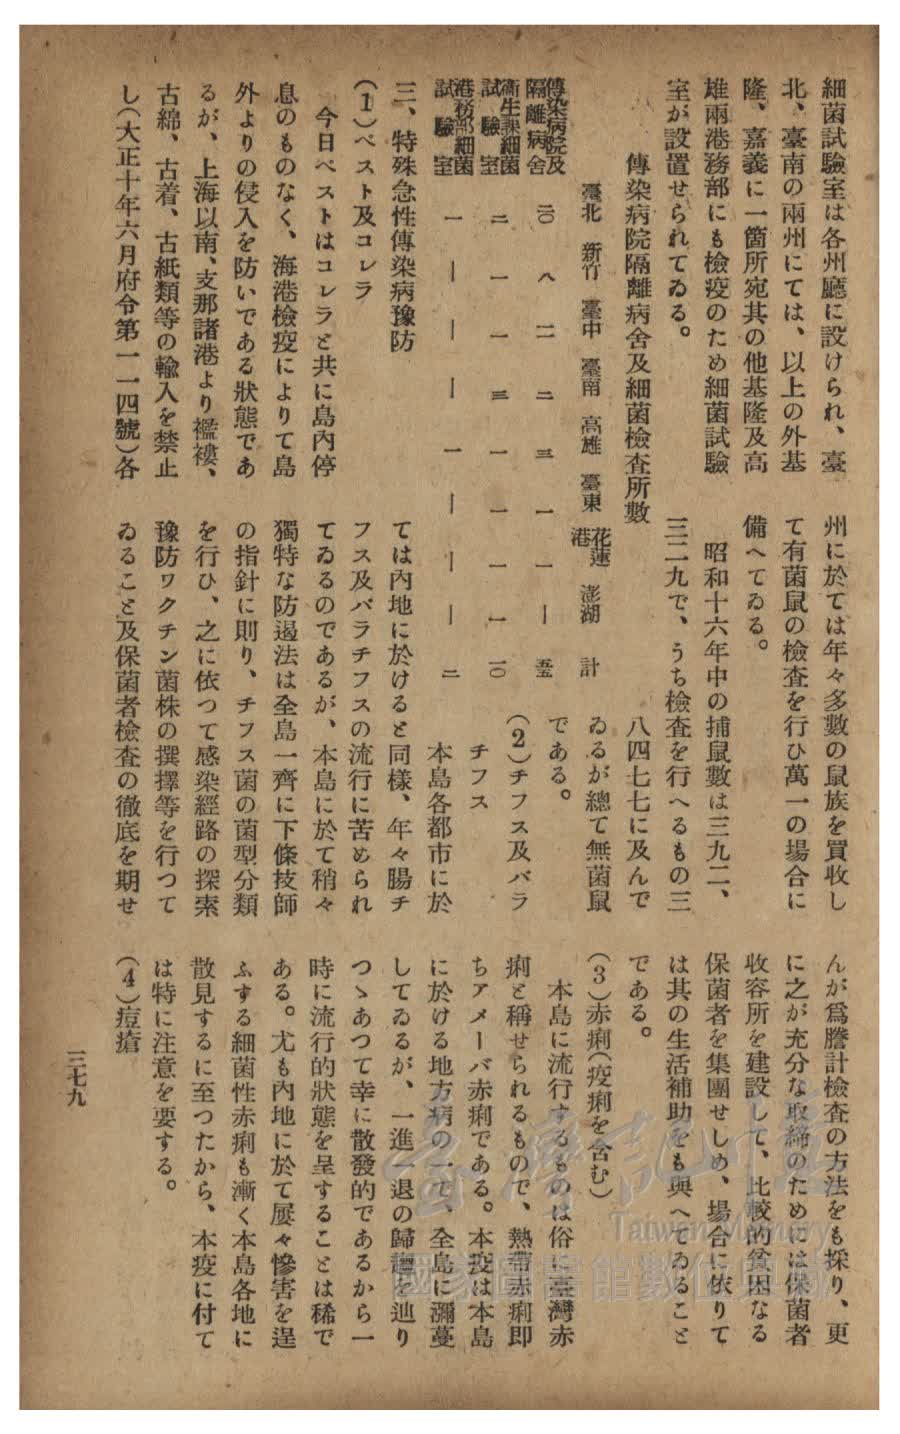 細菌試驗室は各州廳に設けられ、臺
北、臺南の兩州にては、以上の外基
隆、嘉義に一箇所宛其の他基隆及高
雄兩港務部にも檢疫のため細菌試驗
室が設置せられてゐる。
傳染病院隔離病舍及細菌檢査所數
臺北 新竹 臺中 臺南 高雄 臺東 花蓮港 澎湖 計
傳染病院及隔離病舍 二〇 八 一二 二 三 一 一 ― 五
衞生課細菌試驗室 二 一 一 三 一 一 一 一 一〇
港務部細菌試驗室 一 ― ― ― 一 ― ― ― 二
三、特殊急性傳染病豫防
(1)ペスト及コレラ
今日ペストはコレラと共に島內停
息のものなく、海港檢疫によりて島
外よりの侵入を防いである狀態であ
るが、上海以南、支那諸港より襤褸、
古綿、古着、古紙類等の輸入を禁止
し(大正十年六月府令第一一四號)各
州に於ては年々多數の鼠族を買收し
て有菌鼠の檢査を行ひ萬一の場合に
備へてゐる。
昭和十六年中の捕鼠數は三九二、
三二九で、うち檢査を行へるもの三
八四七七に及んで
ゐるが總て無菌鼠
である。
(2)チフス及パラ
チフス
本島各都市に於
ては內地に於けると同樣、年々腸チ
フス及パラチフスの流行に苦められ
てゐるのであるが、本島に於て稍々
獨特な防遏法は全島一齊に下條技師
の指針に則り、チフス菌の菌型分類
を行ひ、之に依つて感染經路の探索
豫防ワクチン菌株の撰擇等を行つて
ゐること及保菌者檢査の徹底を期せ
んが爲謄計檢査の方法をも採り、更
に之が充分な取締のためには保菌者
收容所を建設して、比較的貧困なる
保菌者を集團せしめ、場合に依りて
は其の生活補助をも與へてゐること
である。
(3)赤痢(疫痢を含む)
本島に流行するものは俗に臺灣赤
痢と稱せられるもので、熱帶赤痢即
ちアメーバ赤痢である。本疫は本島
に於ける地方病の一で、全島に瀰蔓
してゐるが、一進一退の歸趨を辿り
つゝあつて幸に散發的であるから一
時に流行的狀態を呈することは稀で
ある。尤も內地に於て屢々慘害を逞
ふする細菌性赤痢も漸く本島各地に
散見するに至つたから、本疫に付て
は特に注意を要する。
(4)痘瘡
三七九
臺灣記憶
Taiwan Memory
國家圖書館數位典藏